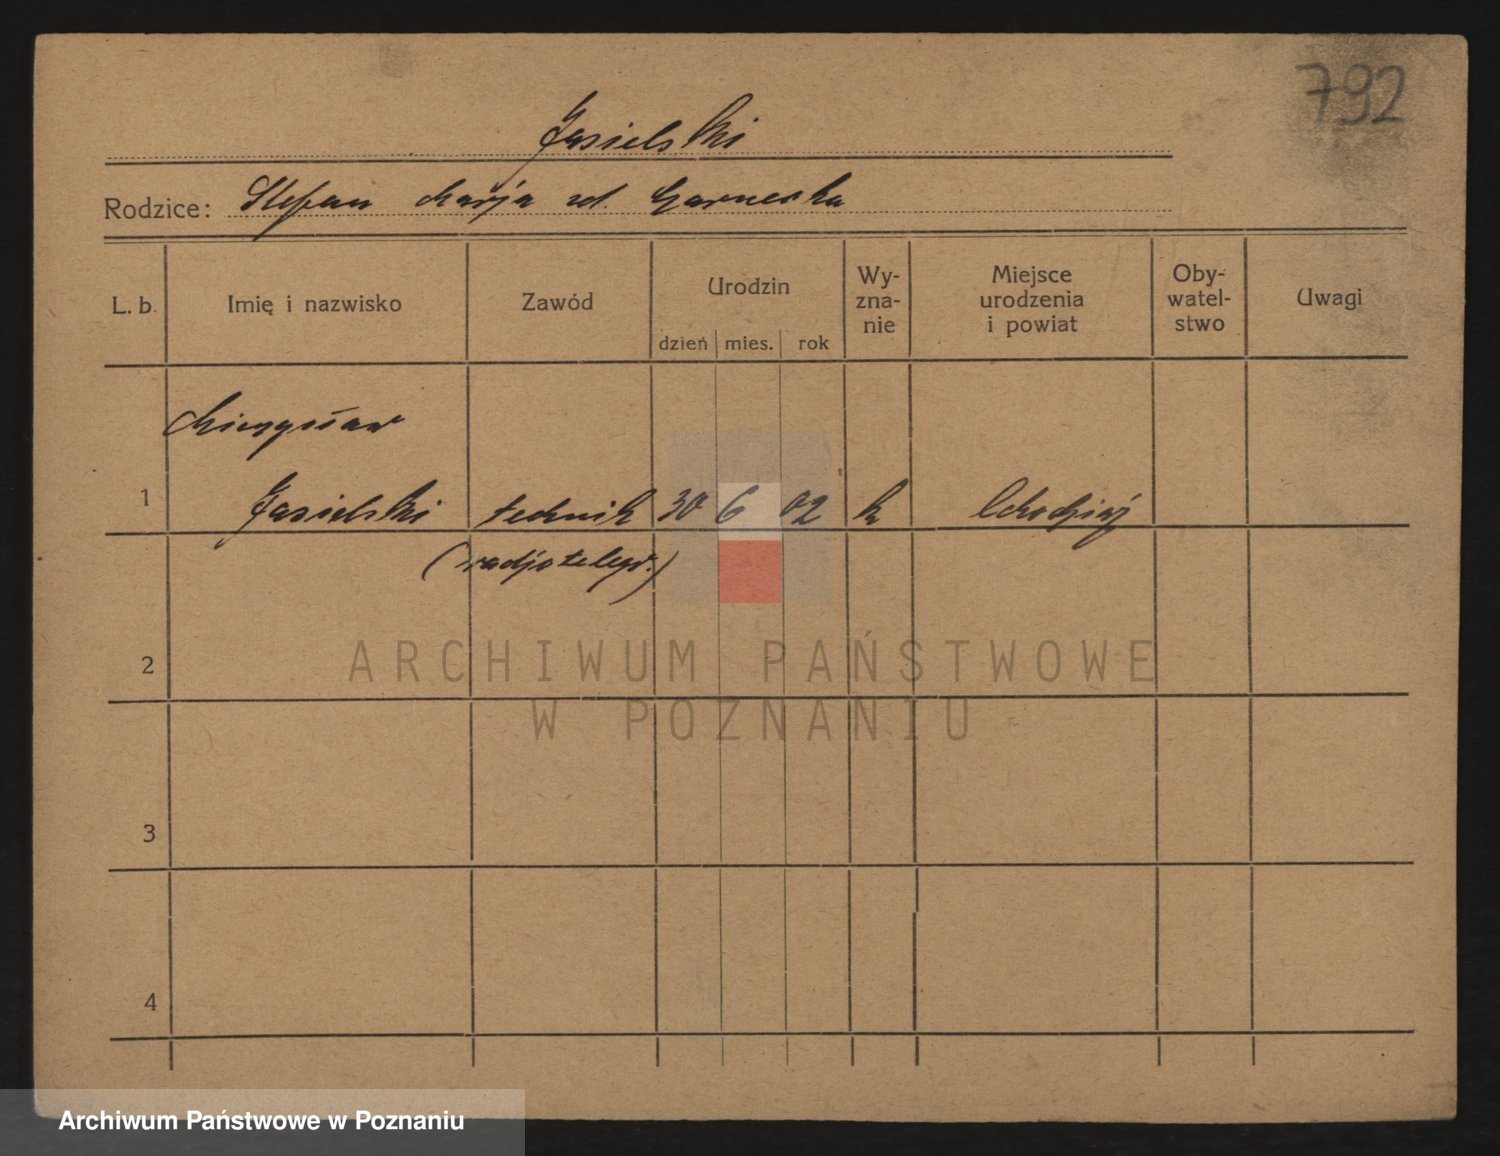 792
Jasielski
Rodzice: Stefan Marja zd. Garnecka
L. b. Imię i nazwisko Zawód Urodzin Wy-zna-nie Miejsce urodzenia i powiat Oby-watel-stwo Uwagi
dzień mies. rok
Mieczysław
1 Jasielski technik 30 6 02 k Chodzież
(radjotelegr.)
2
3
4
ARCHIWUM PAŃSTWOWE
W POZNANIU
Archiwum Państwowe w Poznaniu